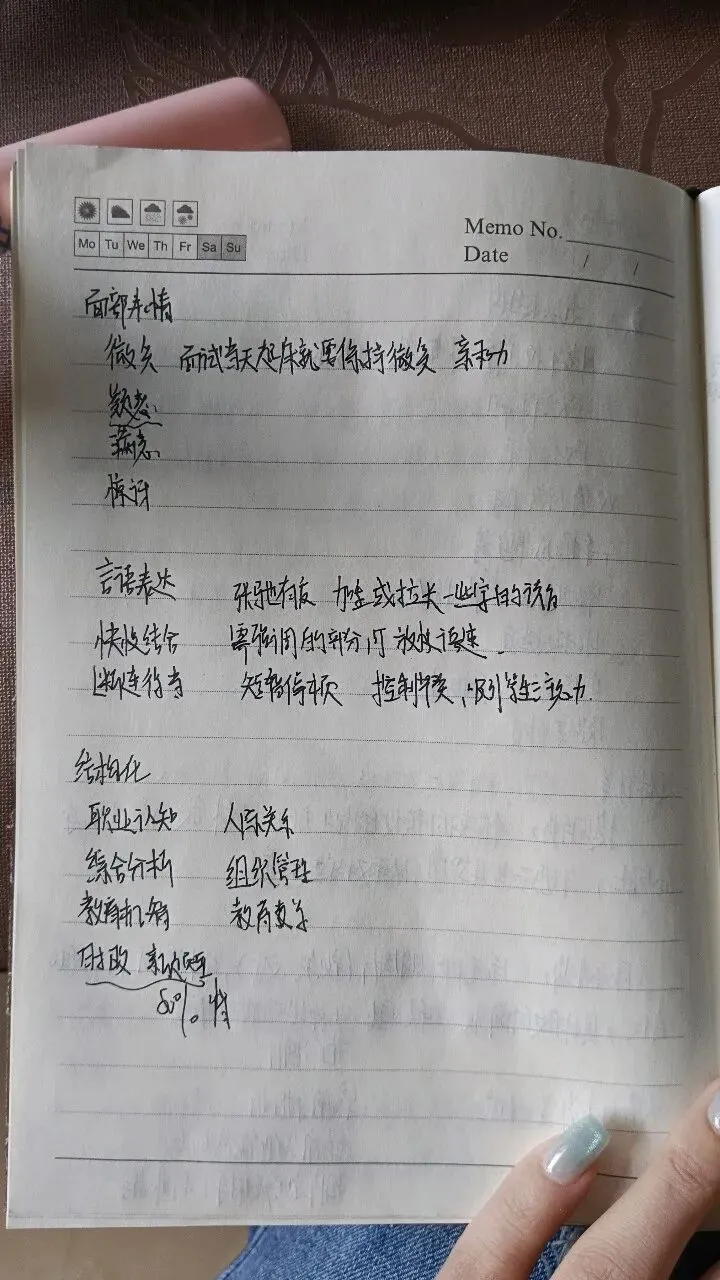 Memo No.
Mo Tu We Th Fr Sa Su
Date / /
面部表情
微笑 面试当天起床就要保持微笑 亲和力
满意
惊讶
言语表达 张弛有度 加重或拉长一些字的读音
快慢结合 需强调的部分可放慢语速.
断连得当 短暂停顿 控制节奏,吸引学生注意力.
结构化
职业认知 人际关系
综合分析 组织管理
教育机智 教育教学
时政
80%。情